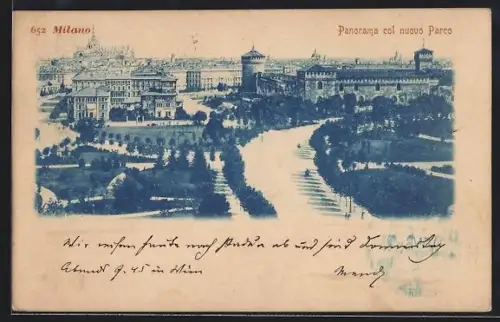 652 Milano
Panorama col nuovo Parco
Wir reisen heute nach Padua ab und sind Donnerstag
Abends 9.45 in Wien